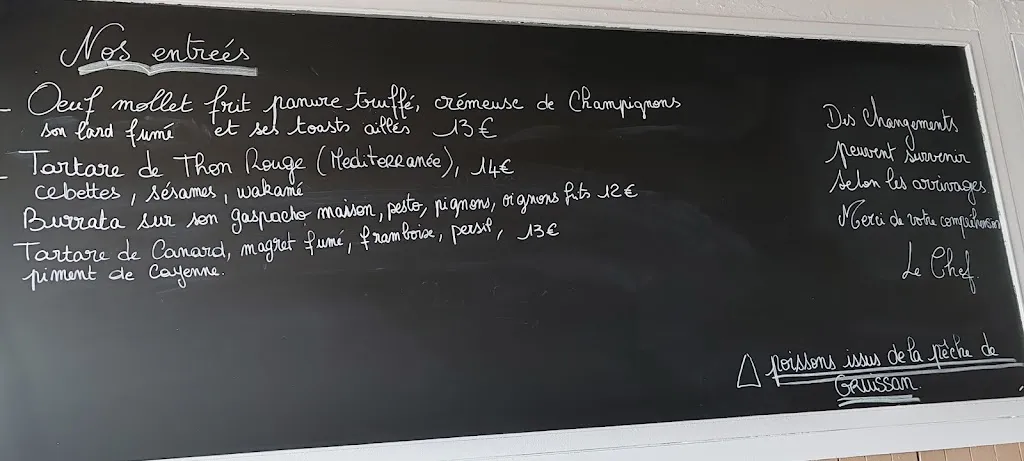 Nos entreés
- Oeuf mollet frit panure truffé, crémeuse de Champignons
son lard fumé et ses toasts aillés 13€
- Tartare de Thon Rouge (Mediterranée), 14€
cebettes, sésames, wakamé
Burrata sur son gaspacho maison, pesto, pignons, oignons frits 12€
Tartare de Canard, magret fumé, framboise, persil, 13€
piment de Cayenne.
Des Changements
peuvent survenir
selon les arrivages.
Merci de votre compréhension
Le Chef.
△ poissons issus de la pêche de
Gruissan.